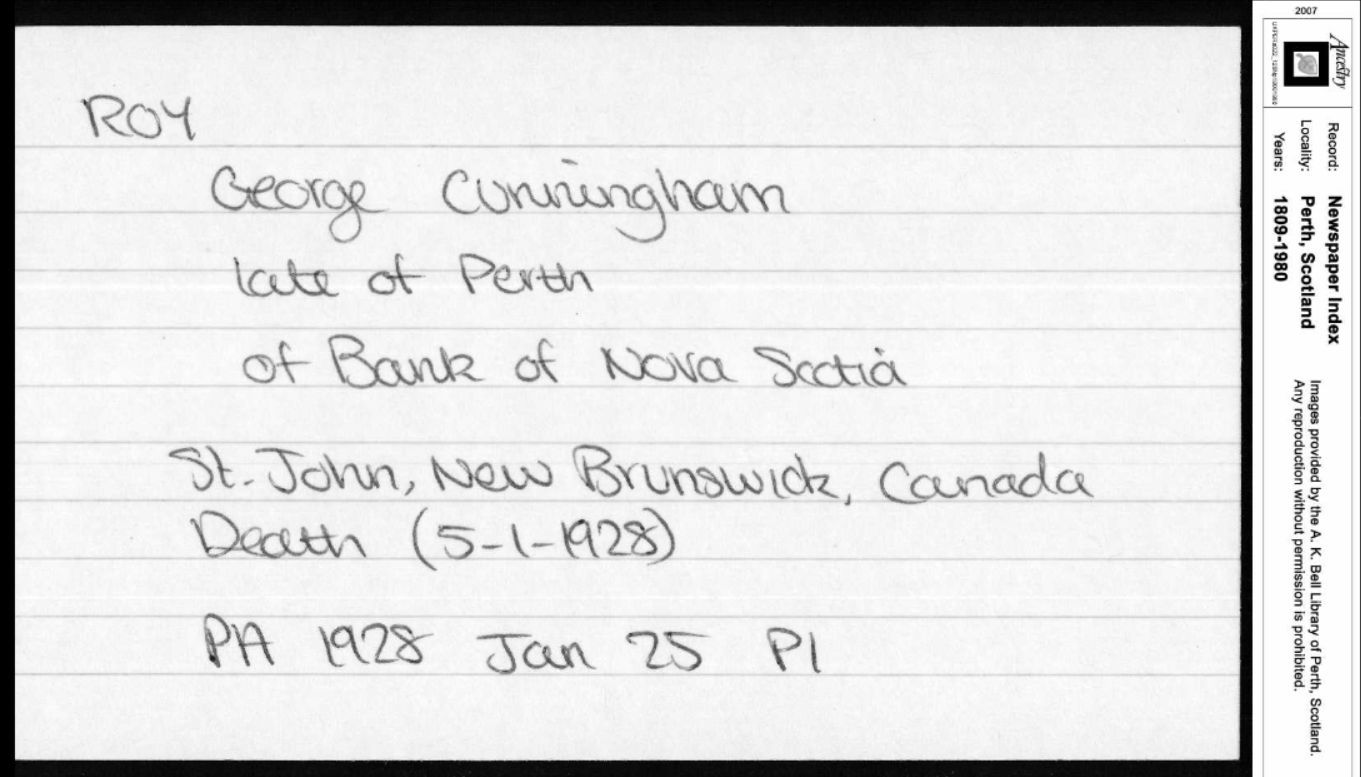 ROY
George Cunningham
late of Perth
of Bank of Nova Scotia
St. John, New Brunswick, Canada
Death (5-1-1928)
PA 1928 Jan 25 P1
2007
Ancestry
Record: Newspaper Index
Locality: Perth, Scotland
Years: 1809-1980
Images provided by the A. K. Bell Library of Perth, Scotland.
Any reproduction without permission is prohibited.